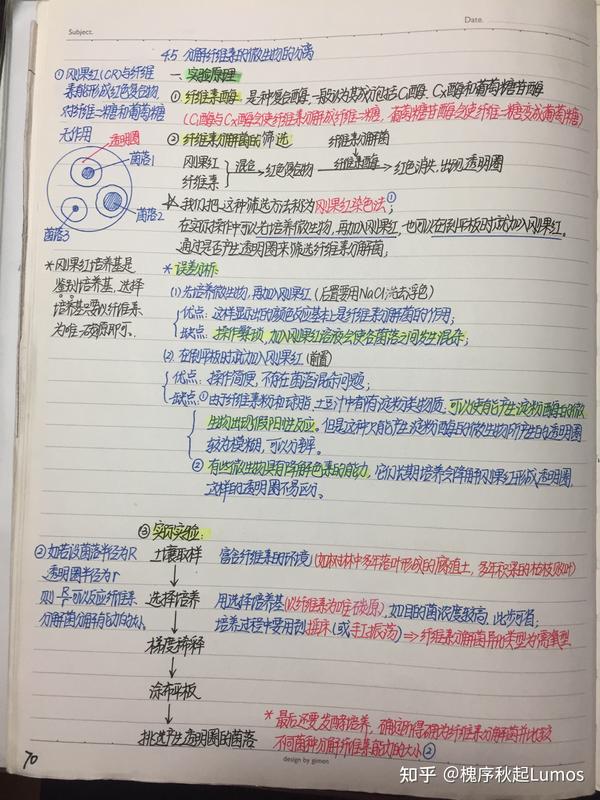 Subject.
Date.
4.5 分解纤维素的微生物的分离
① 刚果红(CR)与纤维
素能形成红色复合物,
对纤维二糖和葡萄糖
无作用
透明圈
菌落1
菌落2
菌落3
* 刚果红培养基是
鉴别培养基,选择
培养基只要以纤维素
为唯一碳源即可.
一. 实验原理
① 纤维素酶:是一种复合酶,一般认为其成分包括C₁酶、Cx酶和葡萄糖苷酶
(C₁酶与Cx酶会使纤维素分解成纤维二糖,葡萄糖苷酶会使纤维二糖变成葡萄糖)
② 纤维素分解菌的筛选
纤维素分解菌
刚果红
纤维素
混色→红色复合物
纤维素酶
→红色消失,出现透明圈
☆ 我们把这种筛选方法称为刚果红染色法①;
在实际操作中可以先培养微生物,再加入刚果红,也可以在倒平板时就加入刚果红。
通过是否产生透明圈来筛选纤维素分解菌;
* 误差分析:
(1) 先培养微生物,再加入刚果红 (后置要用NaCl洗去浮色)
优点:这样显示出的颜色反应基本上是纤维素分解菌的作用;
缺点:操作繁琐,加入刚果红溶液会使各菌落之间发生混杂;
(2) 在倒平板时就加入刚果红 (前置)
优点:操作简便,不存在菌落混杂问题;
缺点:① 由于纤维素粉和琼脂、土豆汁中都含有淀粉类物质,可以使能产生淀粉酶的微
生物出现假阳性反应。但是这种只能产生淀粉酶的微生物所产生的透明圈
较为模糊,可以分辨。
② 有些微生物具有降解色素的能力,它们长期培养会降解刚果红形成透明圈,
这样的透明圈不易区分。
③ 实际实验:
② 如若设菌落半径为R
透明圈半径为r
则 R/r 可以反应纤维素
分解菌分解能力的大小.
土壤取样 富含纤维素的环境 (如树林中多年落叶形成的腐殖土,多年积累的枯枝败叶)
↓
选择培养 用选择培养基(以纤维素为唯一碳源),如目的菌浓度较高,此步可省;
培养过程中要用到摇床(或手工振荡)⇒纤维素分解菌异化类型为需氧型
↓
梯度稀释
↓
涂布平板
↓
挑选产生透明圈的菌落
* 最后还要发酵培养,确定所得确为纤维素分解菌并比较
不同菌种分解纤维素能力的大小②
70
design by gimon
知乎 @槐序秋起Lumos